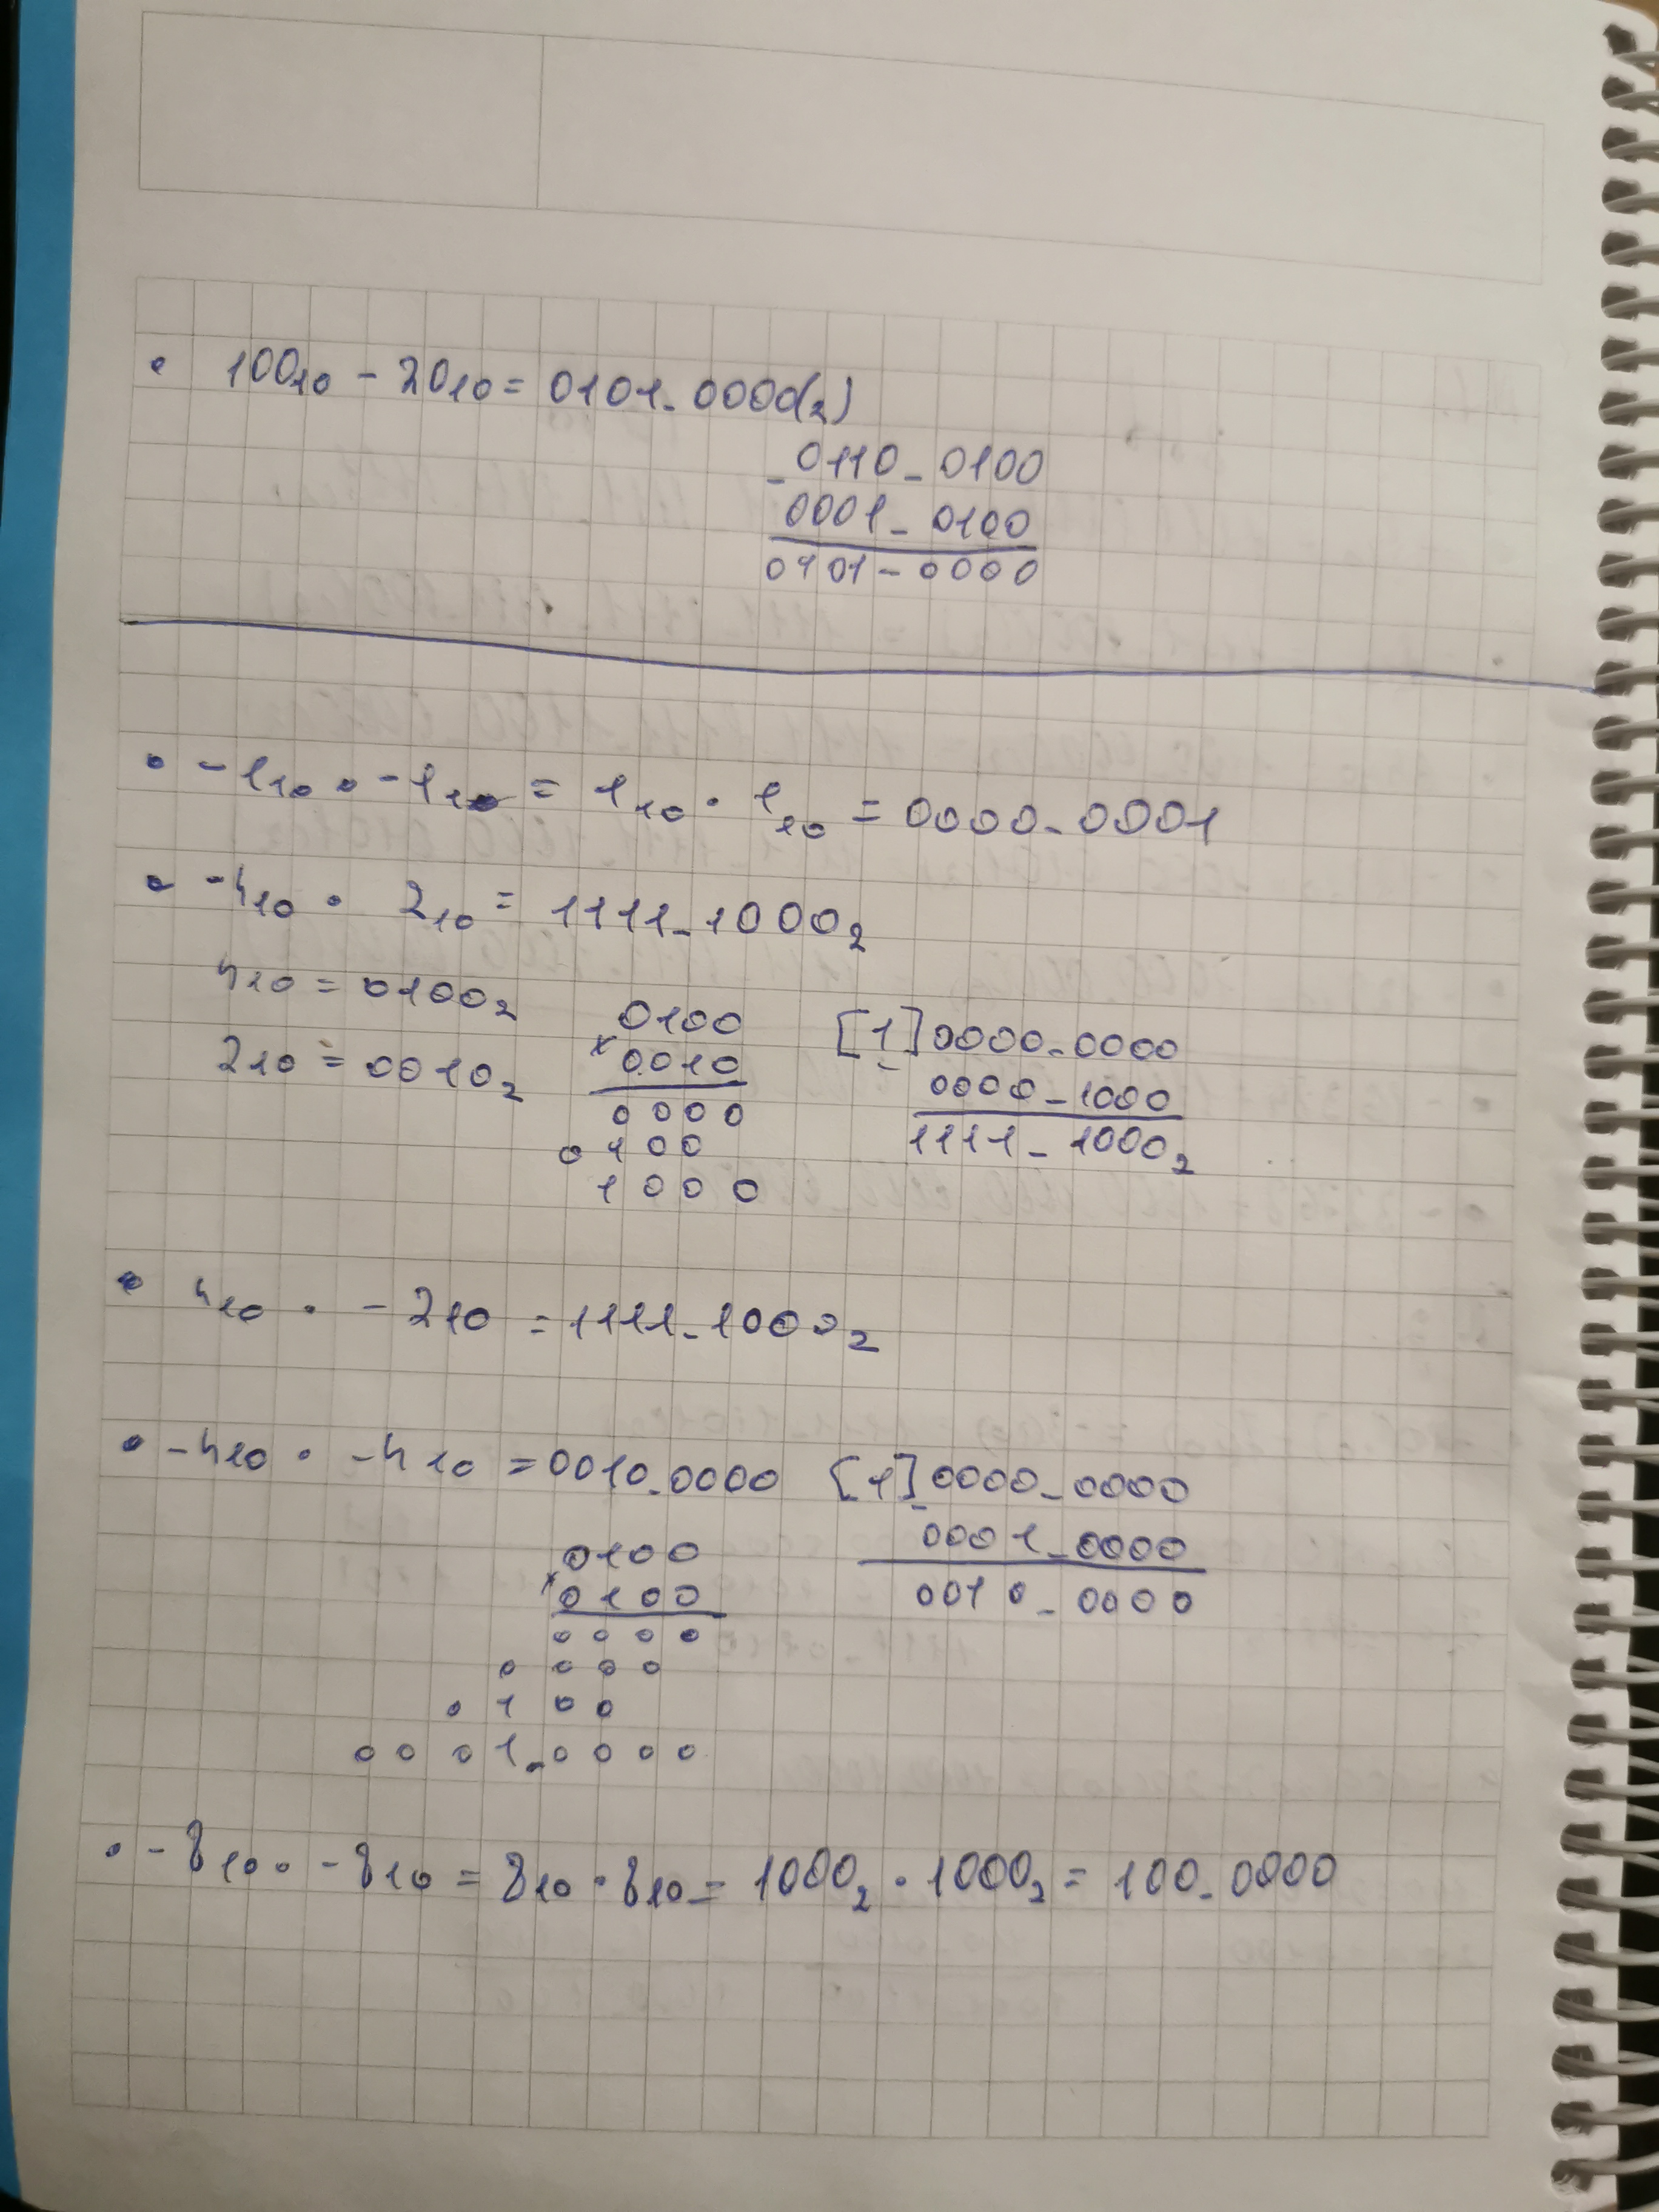 • 100₁₀ - 20₁₀ = 0101_0000(₂)
- 0110_0100
0001_0100
0101_0000
• -1₁₀ • -1₁₀ = 1₁₀ • 1₁₀ = 0000_0001
• -4₁₀ • 2₁₀ = 1111_1000₂
4₁₀ = 0100₂
2₁₀ = 0010₂
0100
x 0010
0000
0100
1000
[1]0000_0000
- 0000_1000
1111_1000₂
• 4₁₀ • -2₁₀ = 1111_1000₂
• -4₁₀ • -4₁₀ = 0010_0000
0100
x 0100
0000
0000
0100
0001_0000
[1]0000_0000
- 0001_0000
0010_0000
• -8₁₀ • -8₁₀ = 8₁₀ • 8₁₀ = 1000₂ • 1000₂ = 100_0000